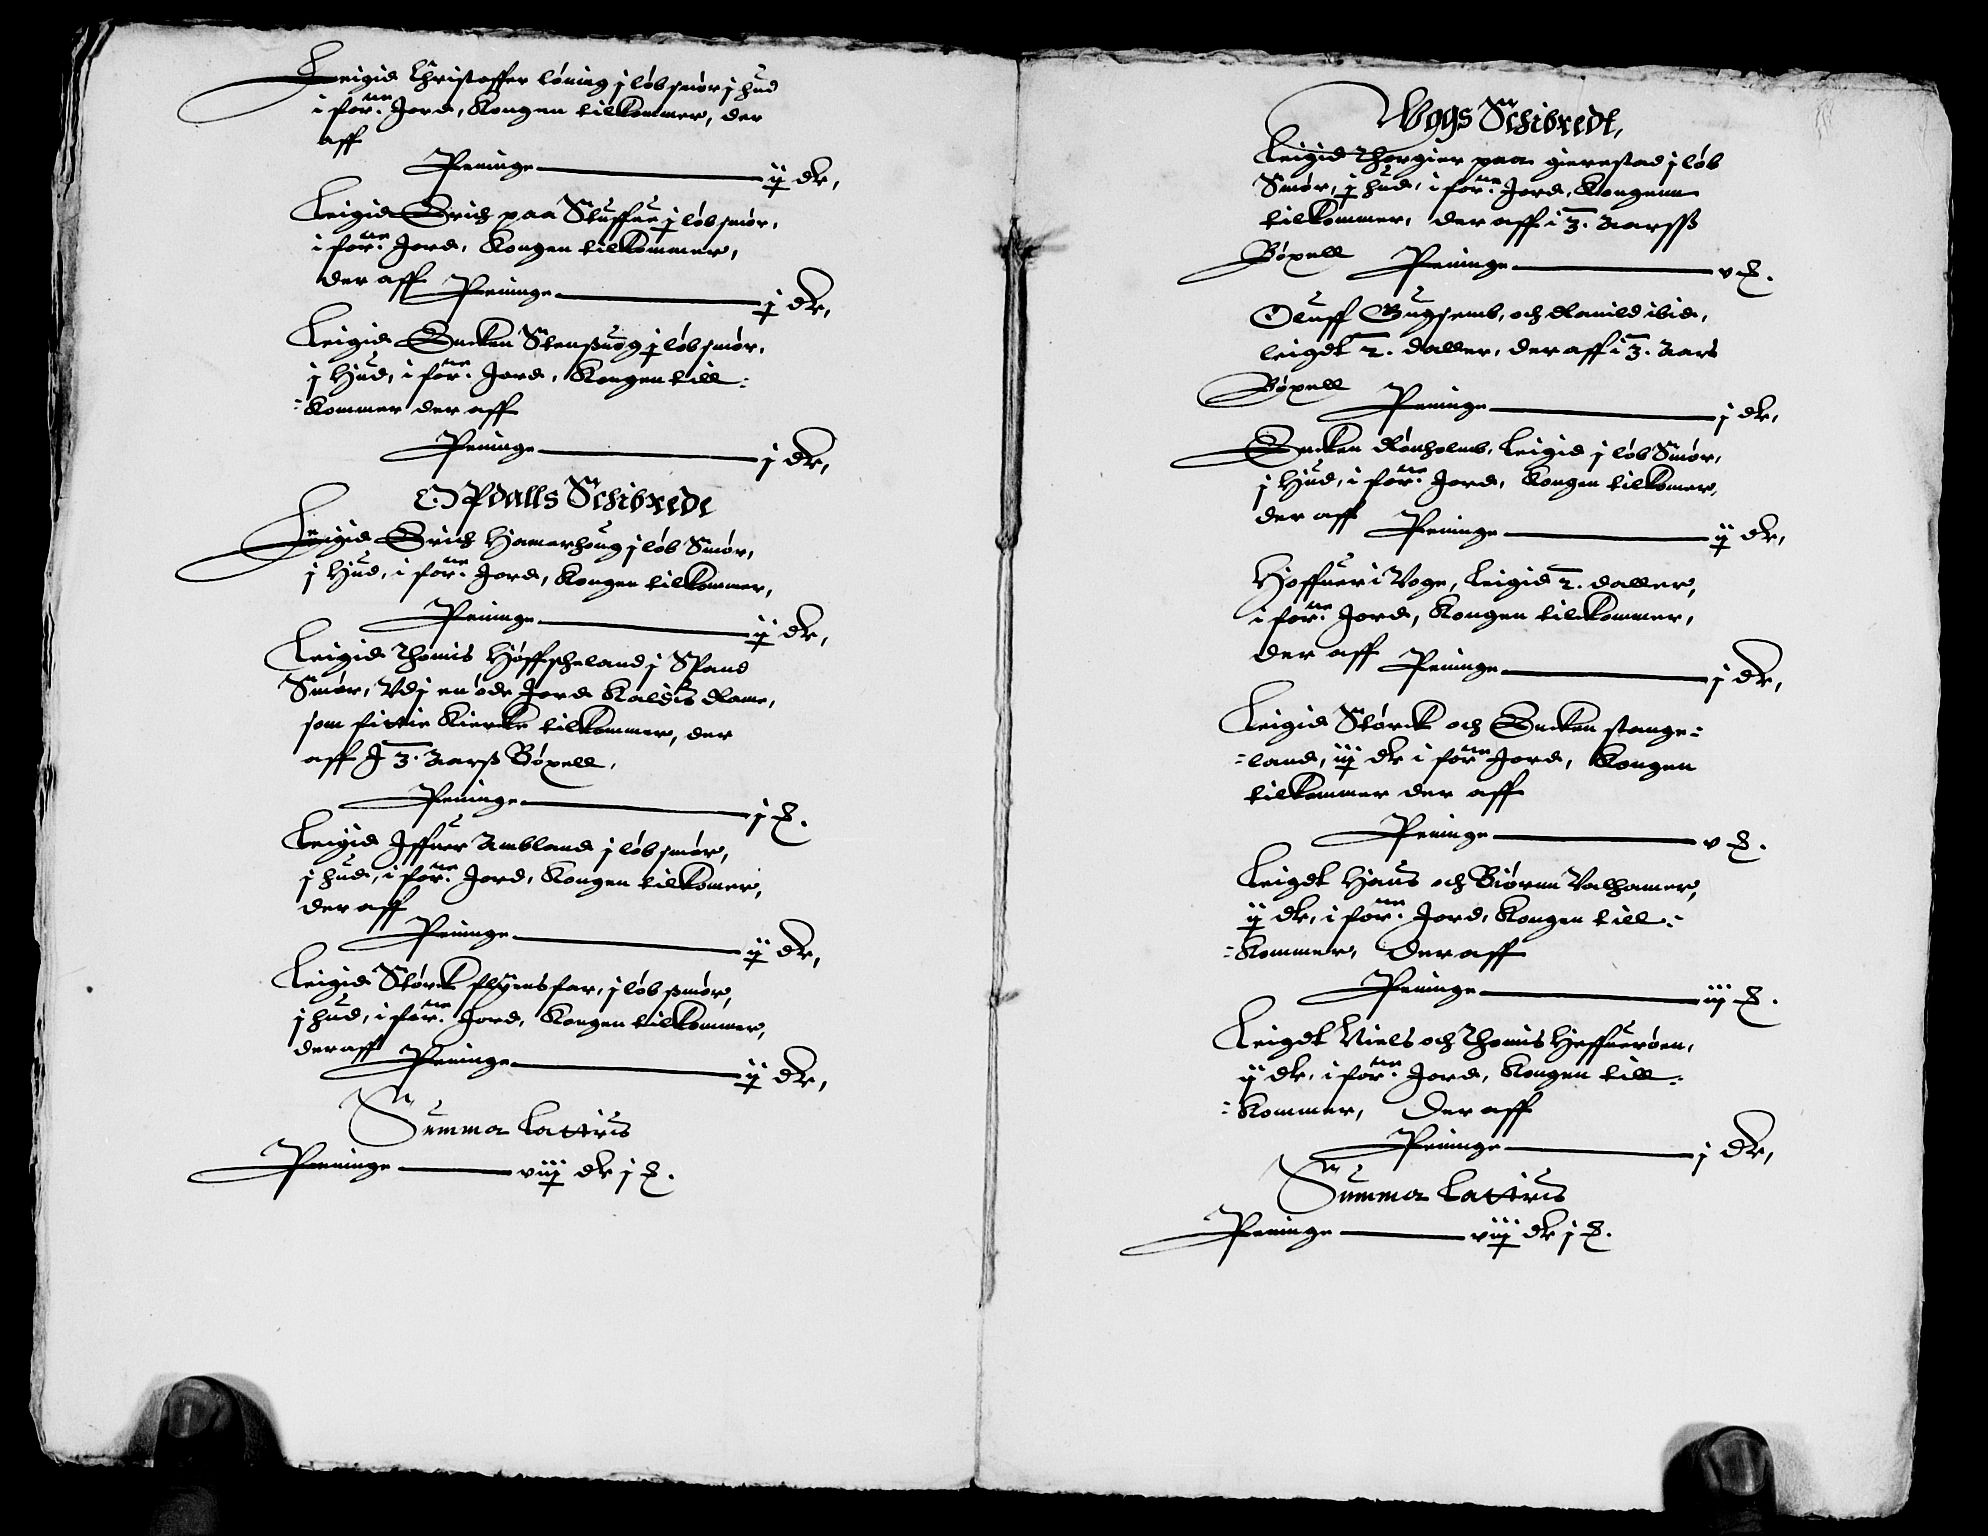 Leigid Christoffer Löning j löb smör j hud
i forne: Jord, Kongen tilkommer, der
aff
Peninge ij dr,
Leigid Erich paa Stuffue j löb smör,
i forne: Jord, Kongen tilkommer,
der aff Peninge j dr,
Leigid Encken Stenshoug j löb smör,
j Hud, i forne: Jord, Kongen till:
:kommer der aff
Peninge j dr,
Opdalls Schibrede
Leigid Erich Hamerhoug j löb Smör,
j Hud, i forne: Jord, Kongen tilkommer,
Peninge ij dr,
Leigid Thomis Höffscheland j Spand
Smör, Vdj en öde Jord Kaldis
som Kiercke tilkommer, der
aff J 3. Aarss Böxell,
Peninge j ₰.
Leigid Iffuer Ambland j löb smör,
j hud, i forne: Jord, Kongen tilkomer,
der aff
Peninge ij dr,
Leigid Störck j löb smör,
j hud, i forne: Jord, Kongen tilkommer,
der aff Peninge ij dr,
Summa Lateris
Peninge viij dr j ₰.
Schibredt,
Leigid Thorgier paa gierestad j löb
Smör, j hud, i forne: Jord, Kongenn
tilkommer, der aff i 3. Aarss
Böxell Peninge v ₰.
Oluff och ibid,
leiget 2. daller, der aff i 3. Aars
Böxell Peninge j dr,
Encken Rönholmb, Leigid j löb Smör,
j Hud, i forne: Jord, Kongen tilkomer,
der aff Peninge ij dr,
Hoffuer i Voge, Leigid 2. daller,
i forne: Jord, Kongen tilkommer,
der aff Peninge j dr,
Leigid Störck och Encken stange:
:land, iij dr i forne Jord, Kongen
tilkommer der aff
Peninge v ₰.
Leiget Hans och Biörnn Valhamer,
ij dr, i forne: Jord, Kongen till:
:kommer, der aff
Peninge iij ₰.
Leiget Niels och Thomis Heffueröen,
ij dr, i forne: Jord, Kongen till:
:kommer, Der aff
Peninge j dr,
Summa Lateris
Peninge viij dr j ₰.